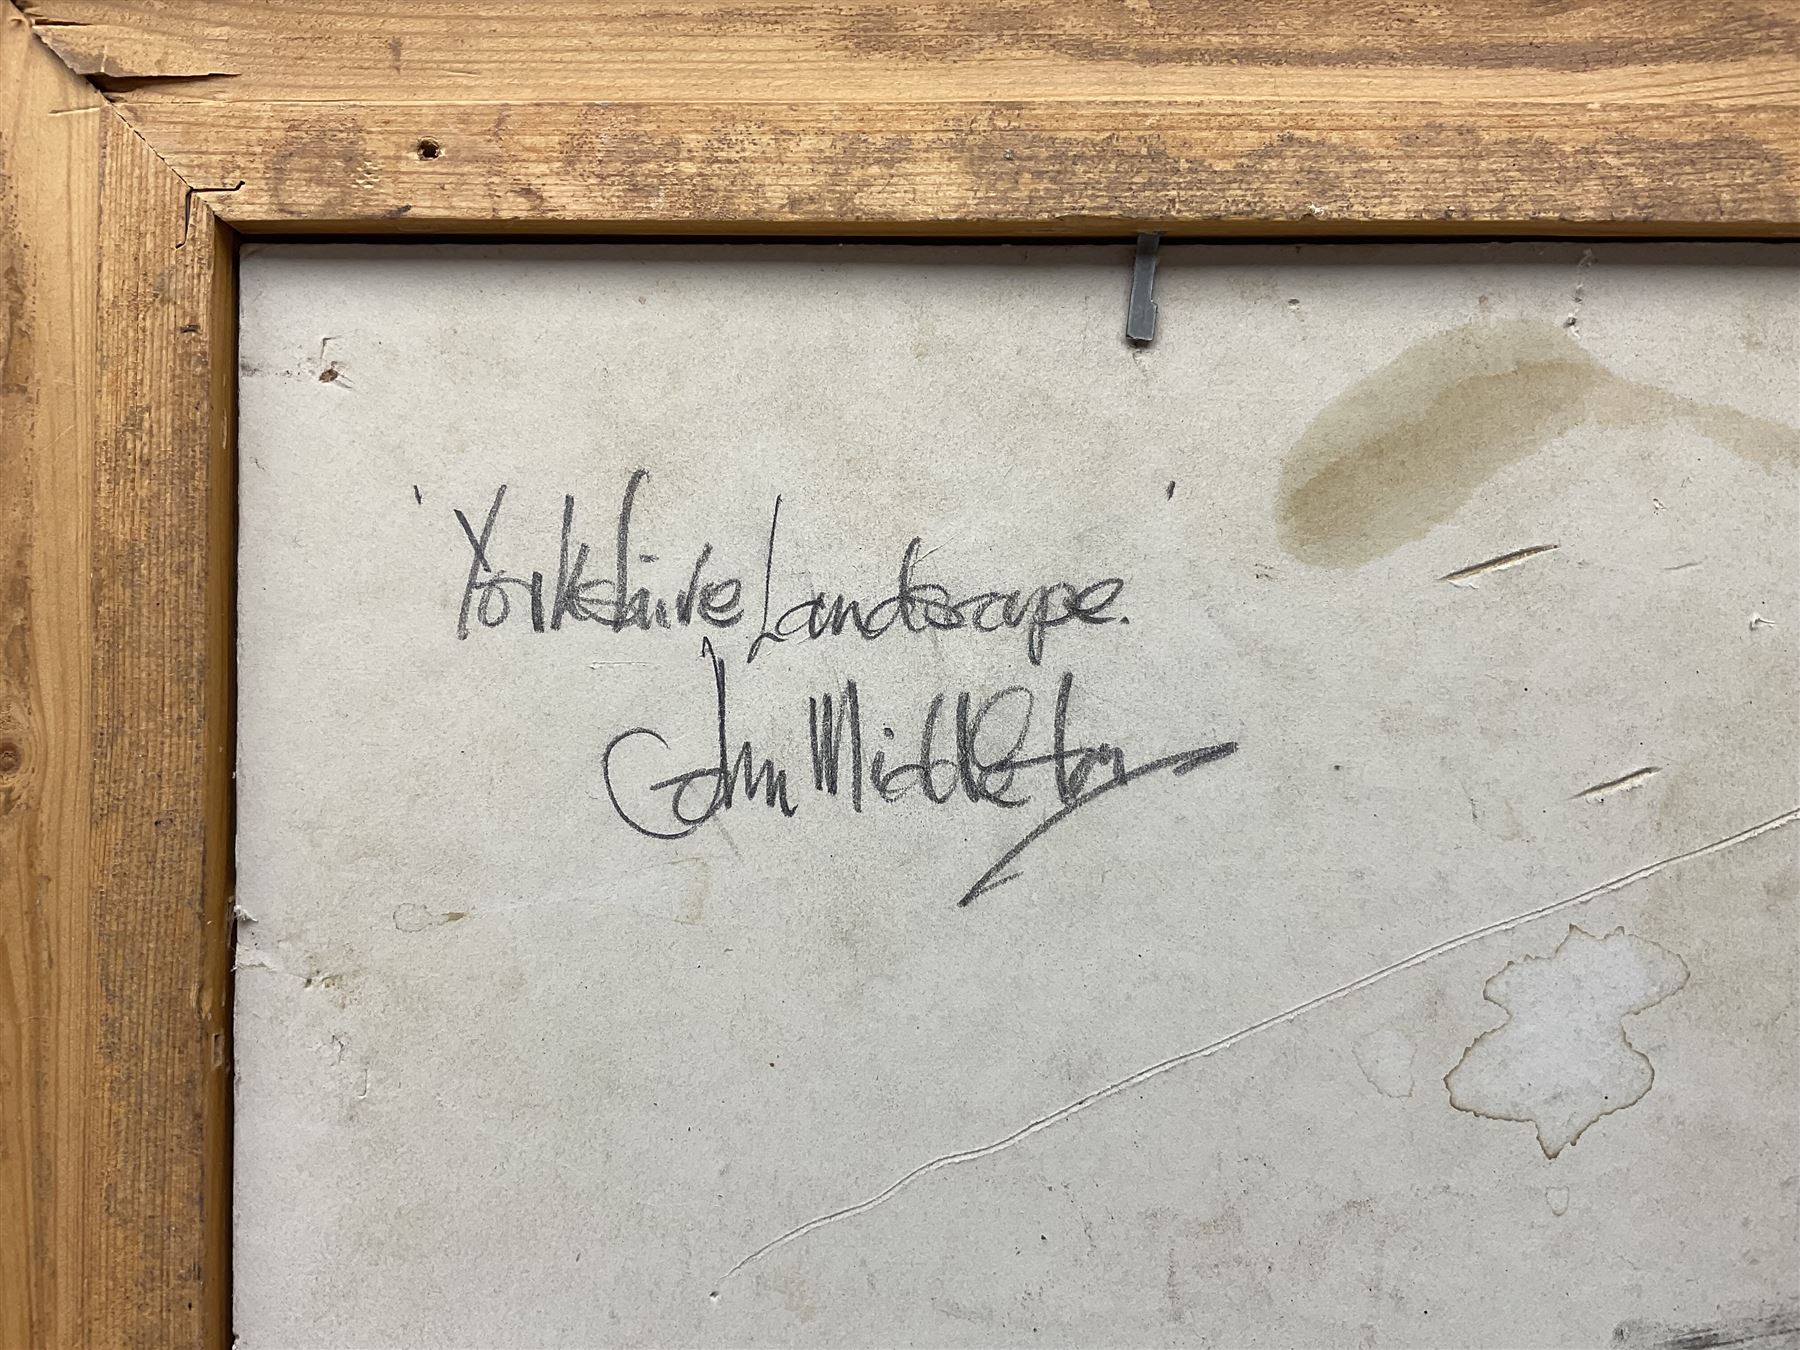 'Yorkshire Landscape.'
John Middleton